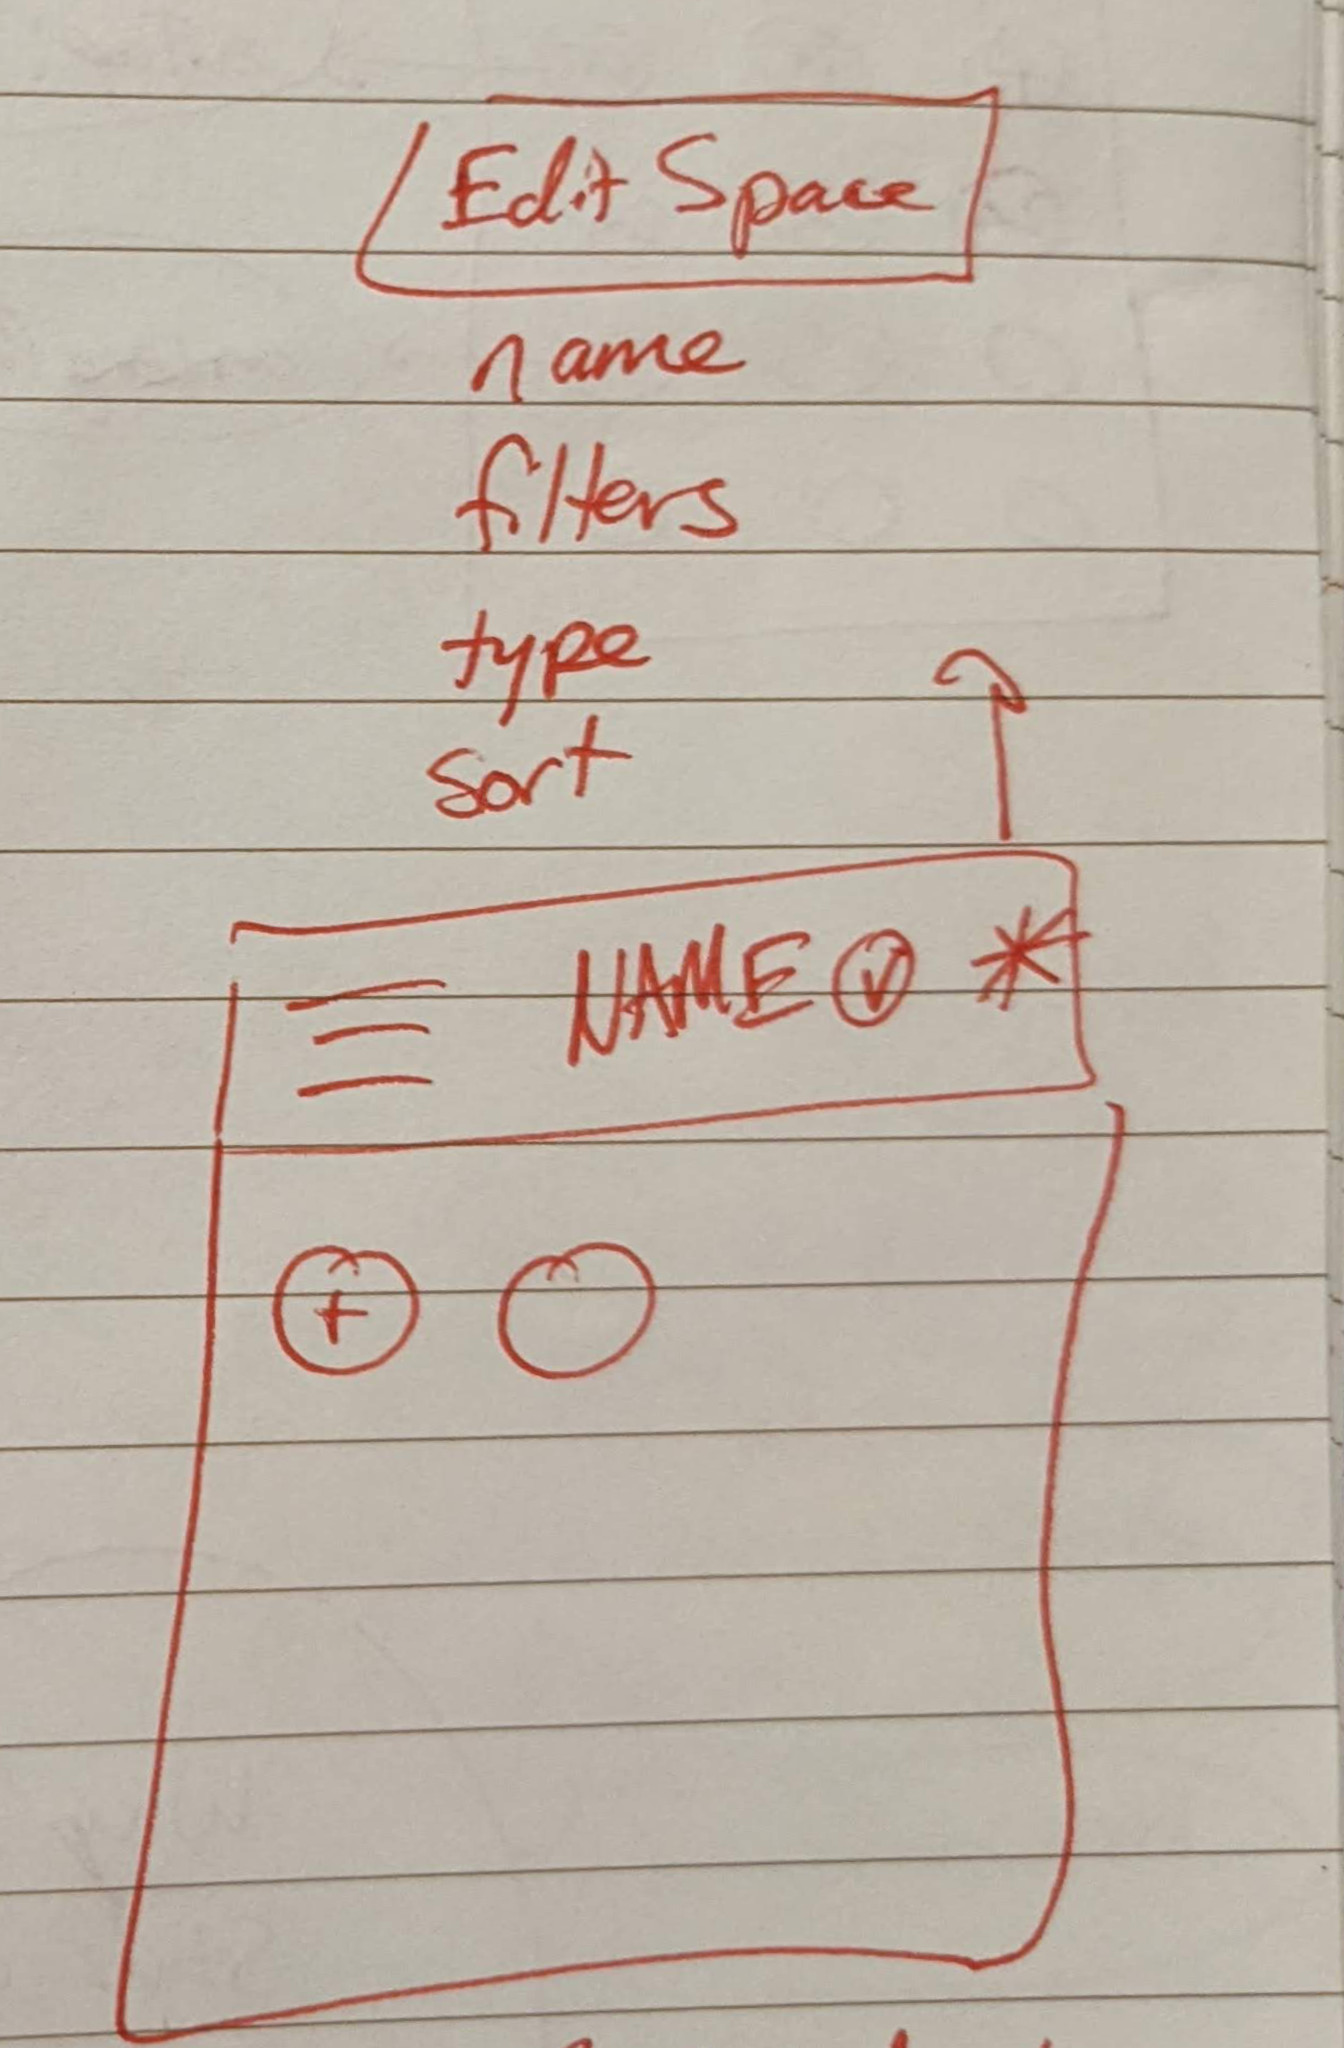 Edit Space
name
filters
type
sort
NAME v *
+